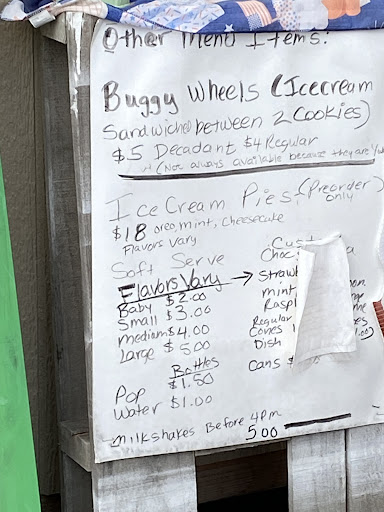 Other Menu Items:
Buggy Wheels (Icecream
Sandwiched between 2 Cookies)
$5 Decadant $4 Regular
(Not always available because they are
Ice Cream Pies (Preorder only)
$18 oreo, mint, cheesecake
Flavors vary
Soft Serve
Flavors Vary →
Baby $2.00
Small $3.00
medium $4.00
Large $5.00
mint
Regular
Cones
Dish
Cans $
Bottles
Pop $1.50
Water $1.00
milkshakes Before 4pm
5.00